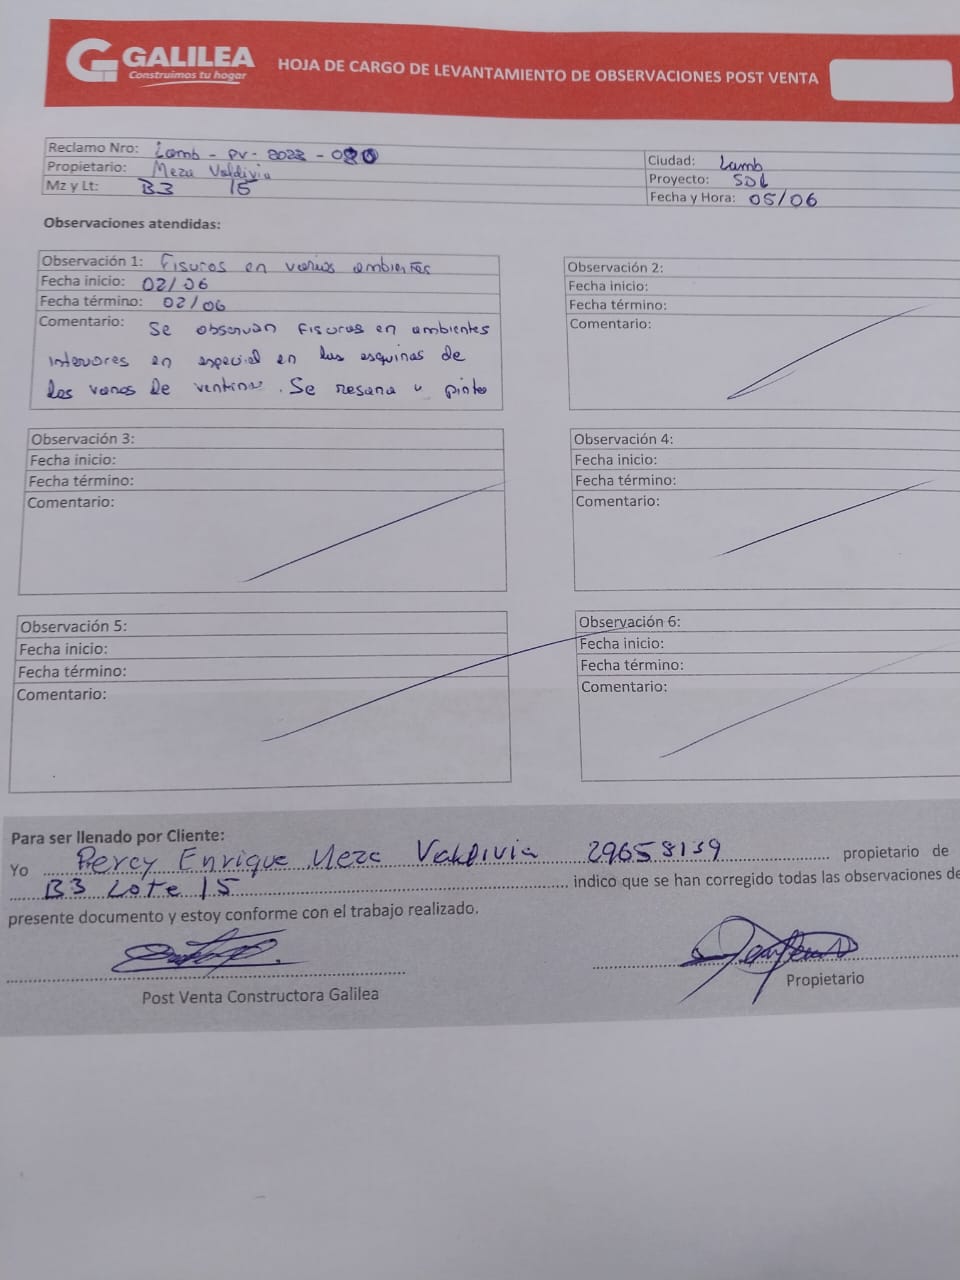 GALILEA
Construimos tu hogar
HOJA DE CARGO DE LEVANTAMIENTO DE OBSERVACIONES POST VENTA
Reclamo Nro: Lamb - PV - 2023 -
Propietario: Meza Valdivia
Mz y Lt: B3 15
Ciudad: Lamb
Proyecto: SDL
Fecha y Hora: 05/06
Observaciones atendidas:
Observación 1: Fisuras en varios ambientes
Fecha inicio: 02/06
Fecha término: 02/06
Comentario: Se observan fisuras en ambientes
interiores en especial en las esquinas de
los vanos de ventana. Se resana y pinta
Observación 2:
Fecha inicio:
Fecha término:
Comentario:
Observación 3:
Fecha inicio:
Fecha término:
Comentario:
Observación 4:
Fecha inicio:
Fecha término:
Comentario:
Observación 5:
Fecha inicio:
Fecha término:
Comentario:
Observación 6:
Fecha inicio:
Fecha término:
Comentario:
Para ser llenado por Cliente:
Yo Percy Enrique Meza Valdivia 29658139 propietario de
B3 Lote 15 indico que se han corregido todas las observaciones de
presente documento y estoy conforme con el trabajo realizado.
Post Venta Constructora Galilea
Propietario